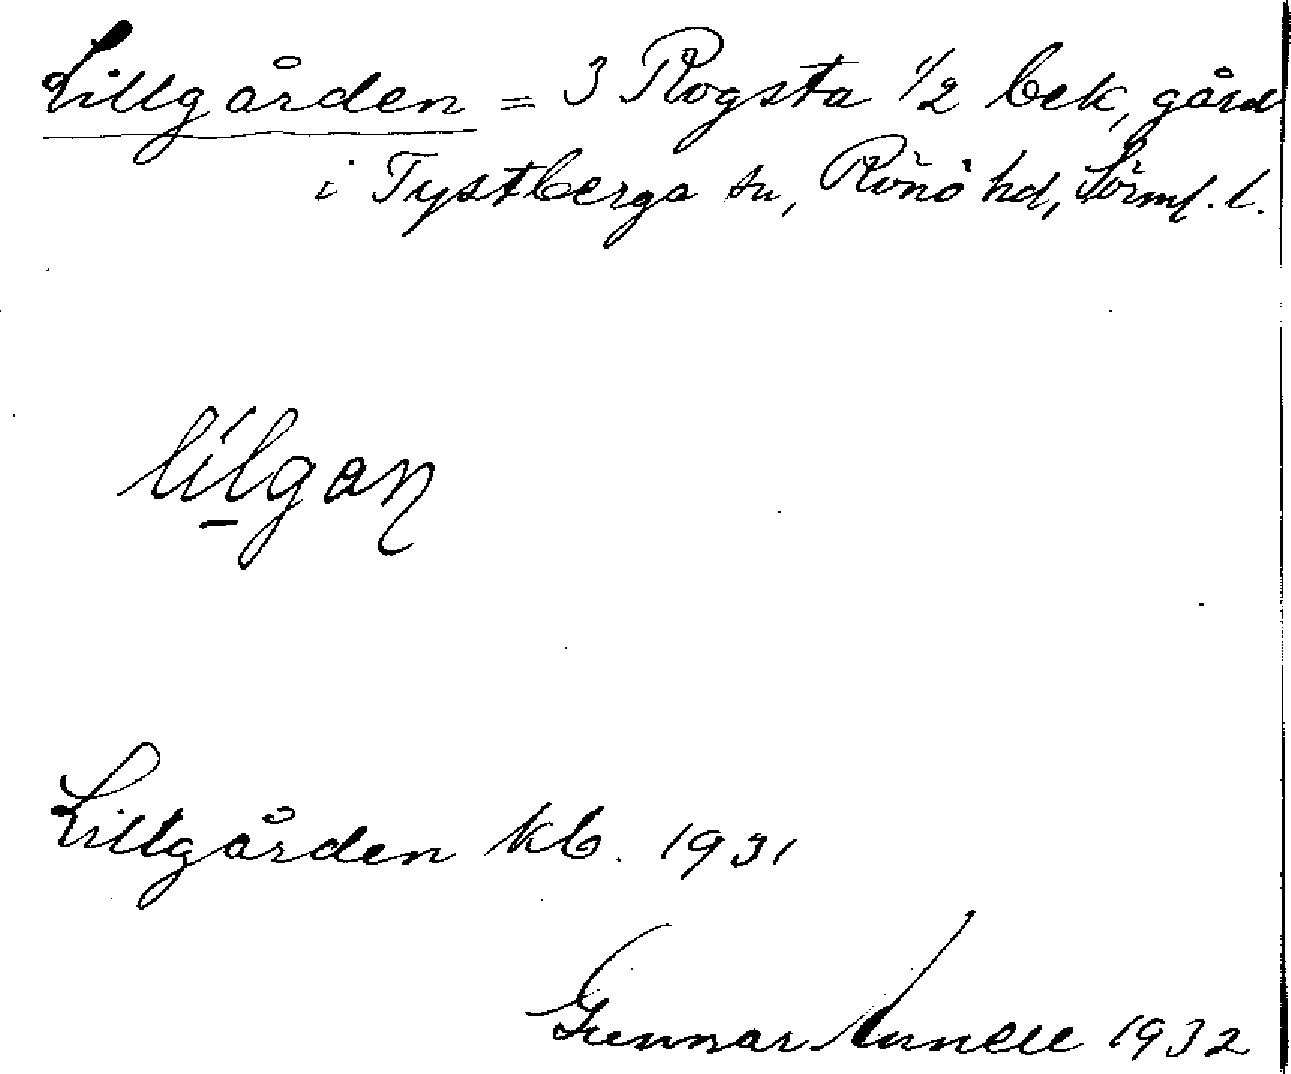 Lillgården = 3 Rogsta 1/2 bek, gård
i Tystberga sn, Rönö hd, Sörml. l.
lílgaɳ
Lillgården kb. 1931
Gunnar 1932